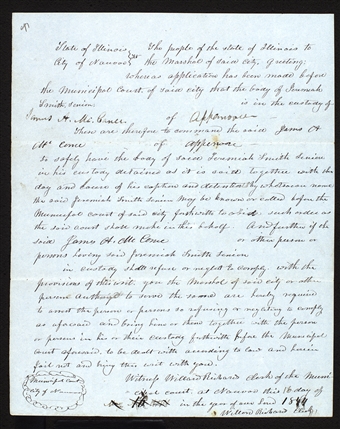 State of Illinois } The people of the state of Illinois to
City of Nauvoo } the Marshal of said city, Greeting;
whereas application has been made before
the Municipal Court of said city that the body of Jeremiah
Smith senior is in the custody of
James H. Mc. Cone of Appenoose
These are therefore to command the said James H
Mc Cone of Appenoose
to safely have the body of said Jeremiah Smith Senior
in his custody detained as it is said together with the
day and cause of his caption and detention by whatsoever name
the said Jeremiah Smith Senior may be known or called before the
Municipal court of said city forthwith to abide such order as
the said court shall make in this behalf. And further if the
said James H. Mc Cone or other person or
persons having said Jeremiah Smith senior
in custody shall refuse or neglect to comply with the
provisions of this writ, you the Marshal of said city or other
person authorized to serve the same are hereby required
to arrest the person or persons so refusing or neglecting to comply
as aforesaid and bring him or them together with the person
or persons in his or their custody forthwith before the Municipal
court aforesaid to be dealt with according to law and herein
fail not and bring this writ with you.
Witness Willard Richard clerk of the Munici
Municipal Court pal court at Nauvoo this 16 day of
city of Nauvoo in the year of our Lord 1844
Willard Richard Clerk